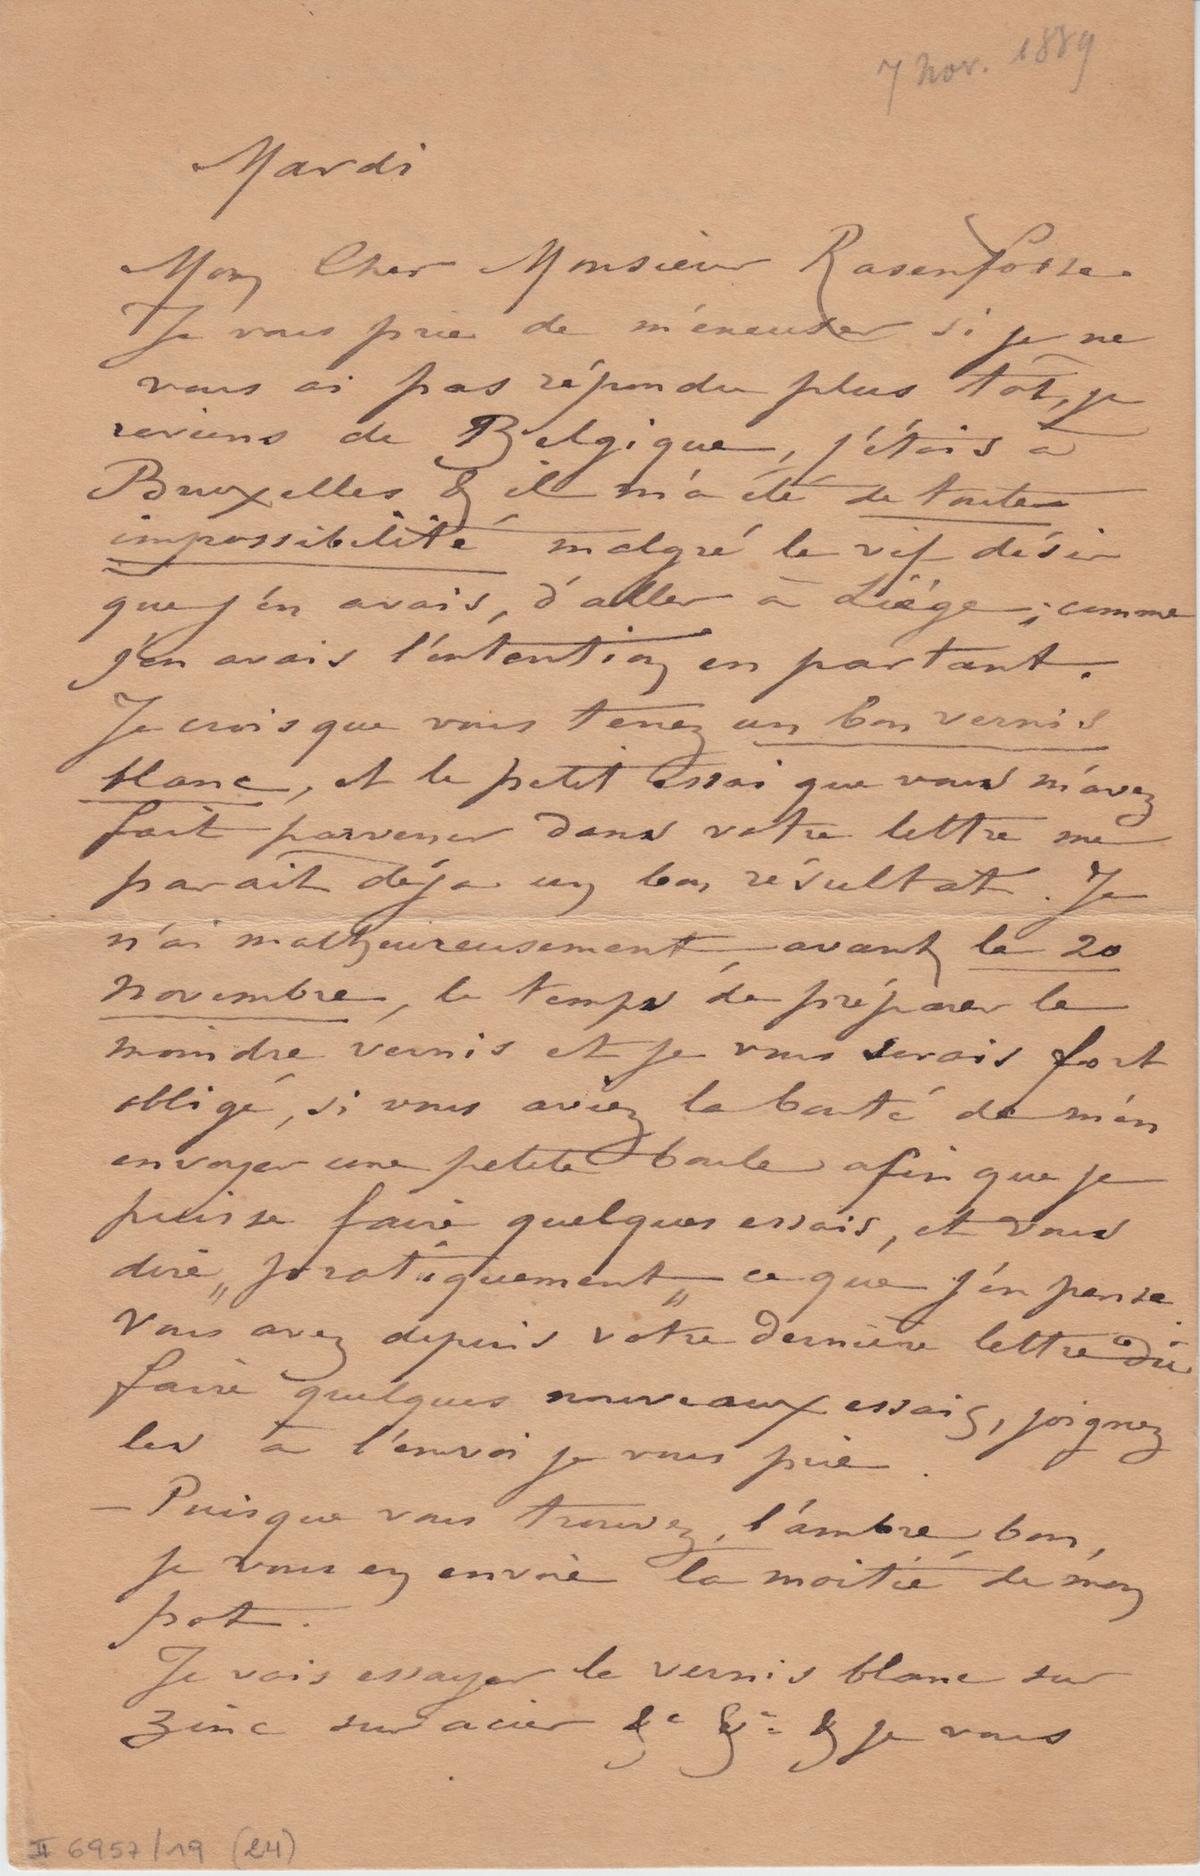 7 Nov. 1889
Mardi
Mon Cher Monsieur Rasenfosse.
Je vous prie de m'excuser si je ne
vous ai pas répondu plus tôt, je
reviens de Belgique, j'étais à
Bruxelles & il m'a été de toute
impossibilité malgré le vif désir
que j'en avais, d'aller à Liége, comme
j'en avais l'intention en partant.
Je crois que vous tenez un bon vernis
blanc, et le petit essai que vous m'avez
fait parvenir dans votre lettre me
parait déja un bon résultat. Je
n'ai malheureusement, avant le 20
novembre, le temps de préparer le
moindre vernis et je vous serais fort
obligé, si vous aviez la bonté de m'en
envoyer une petite boule afin que je
puisse faire quelques essais, et vous
dire „pratiquement„ ce que j'en pense
Vous avez depuis votre dernière lettre dû
faire quelques nouveaux essais, joignez
les à l'envoi je vous prie.
– Puisque vous trouvez, l'ambre, bon,
je vous en envoie la moitié de mon
pot.
Je vais essayer le vernis blanc sur
zinc sur acier &c &c & je vous
II 6957/19 (24)